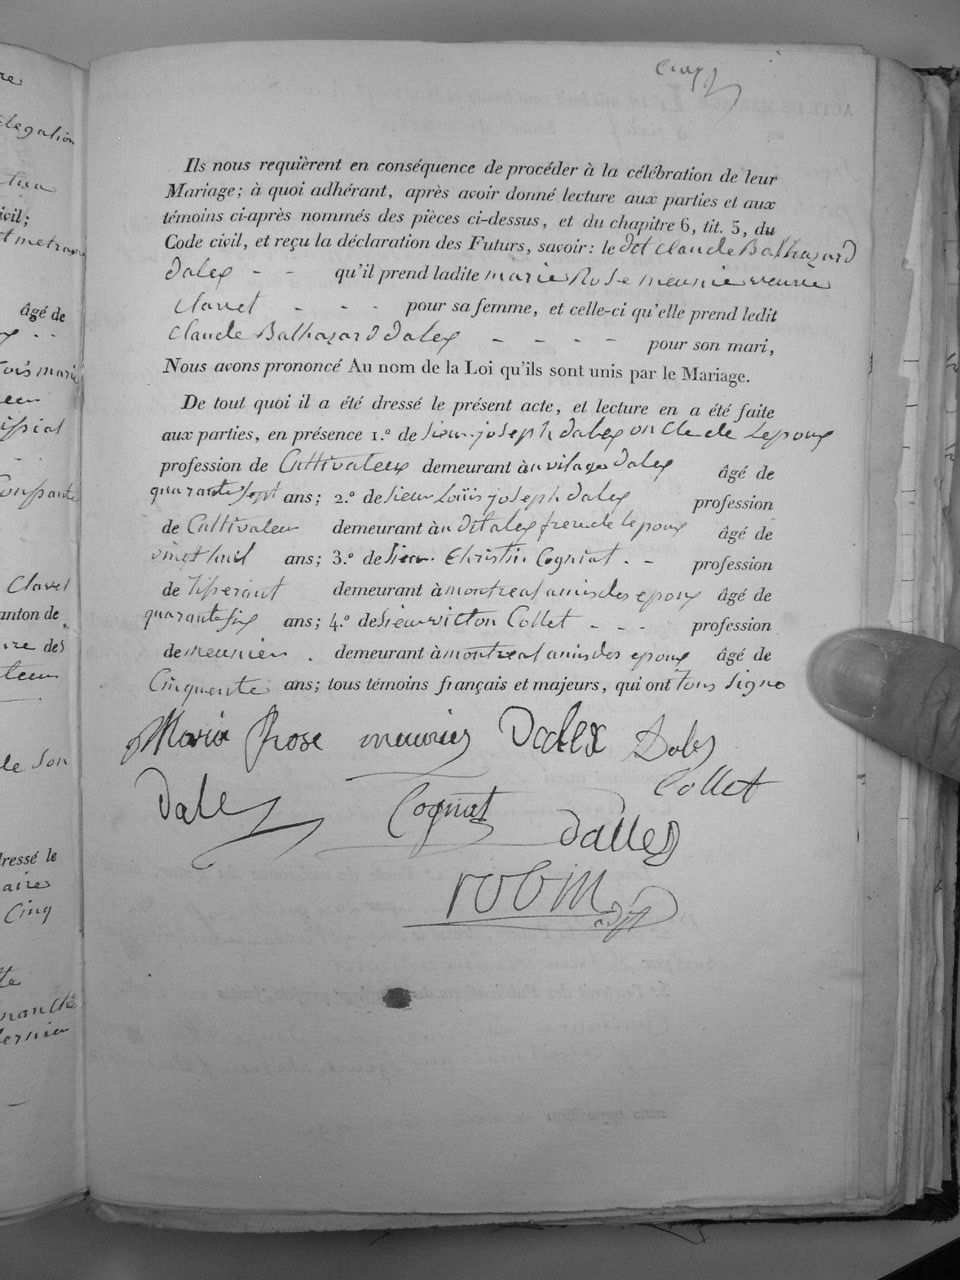 Ils nous requièrent en conséquence de procéder à la célébration de leur
Mariage; à quoi adhérant, après avoir donné lecture aux parties et aux
témoins ci-après nommés des pièces ci-dessus, et du chapitre 6, tit. 5, du
Code civil, et reçu la déclaration des Futurs, savoir: le dit Claude Balthazard
Dalex - - qu'il prend ladite marie Rose meunier veuve
Clavel - - - pour sa femme, et celle-ci qu'elle prend ledit
Claude Balthazard Dalex - - - - pour son mari,
Nous avons prononcé Au nom de la Loi qu'ils sont unis par le Mariage.
De tout quoi il a été dressé le présent acte, et lecture en a été faite
aux parties, en présence 1.º de sieur joseph dalex oncle de lepoux
profession de Cultivateur demeurant à au vilage dalex âgé de
quarante sept ans; 2.º de sieur Loüis joseph dalex profession
de Cultivateur demeurant à au dit alex frere de lepoux âgé de
vingt huit ans; 3.º de sieur Christin Cogniat - - profession
de Tisserant demeurant à montreal amis des epoux âgé de
quarante six ans; 4.º de sieur victor Collet - - - profession
de meunier . demeurant à montreal amis des epoux âgé de
Cinquente ans; tous témoins français et majeurs, qui ont Tous signe
Marie Rose meunier Dalex Dalex
Collet
Dalex Cogniat Dallex
robin
elegation
ivil;
âgé de
ois marie
Clavel
anton de
ire des
de son
dressé le
aire
Cinq